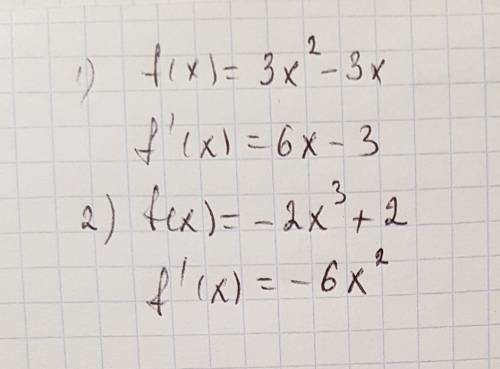 1) f(x) = 3x² - 3x
f'(x) = 6x - 3
2) f(x) = - 2x³ + 2
f'(x) = - 6x²